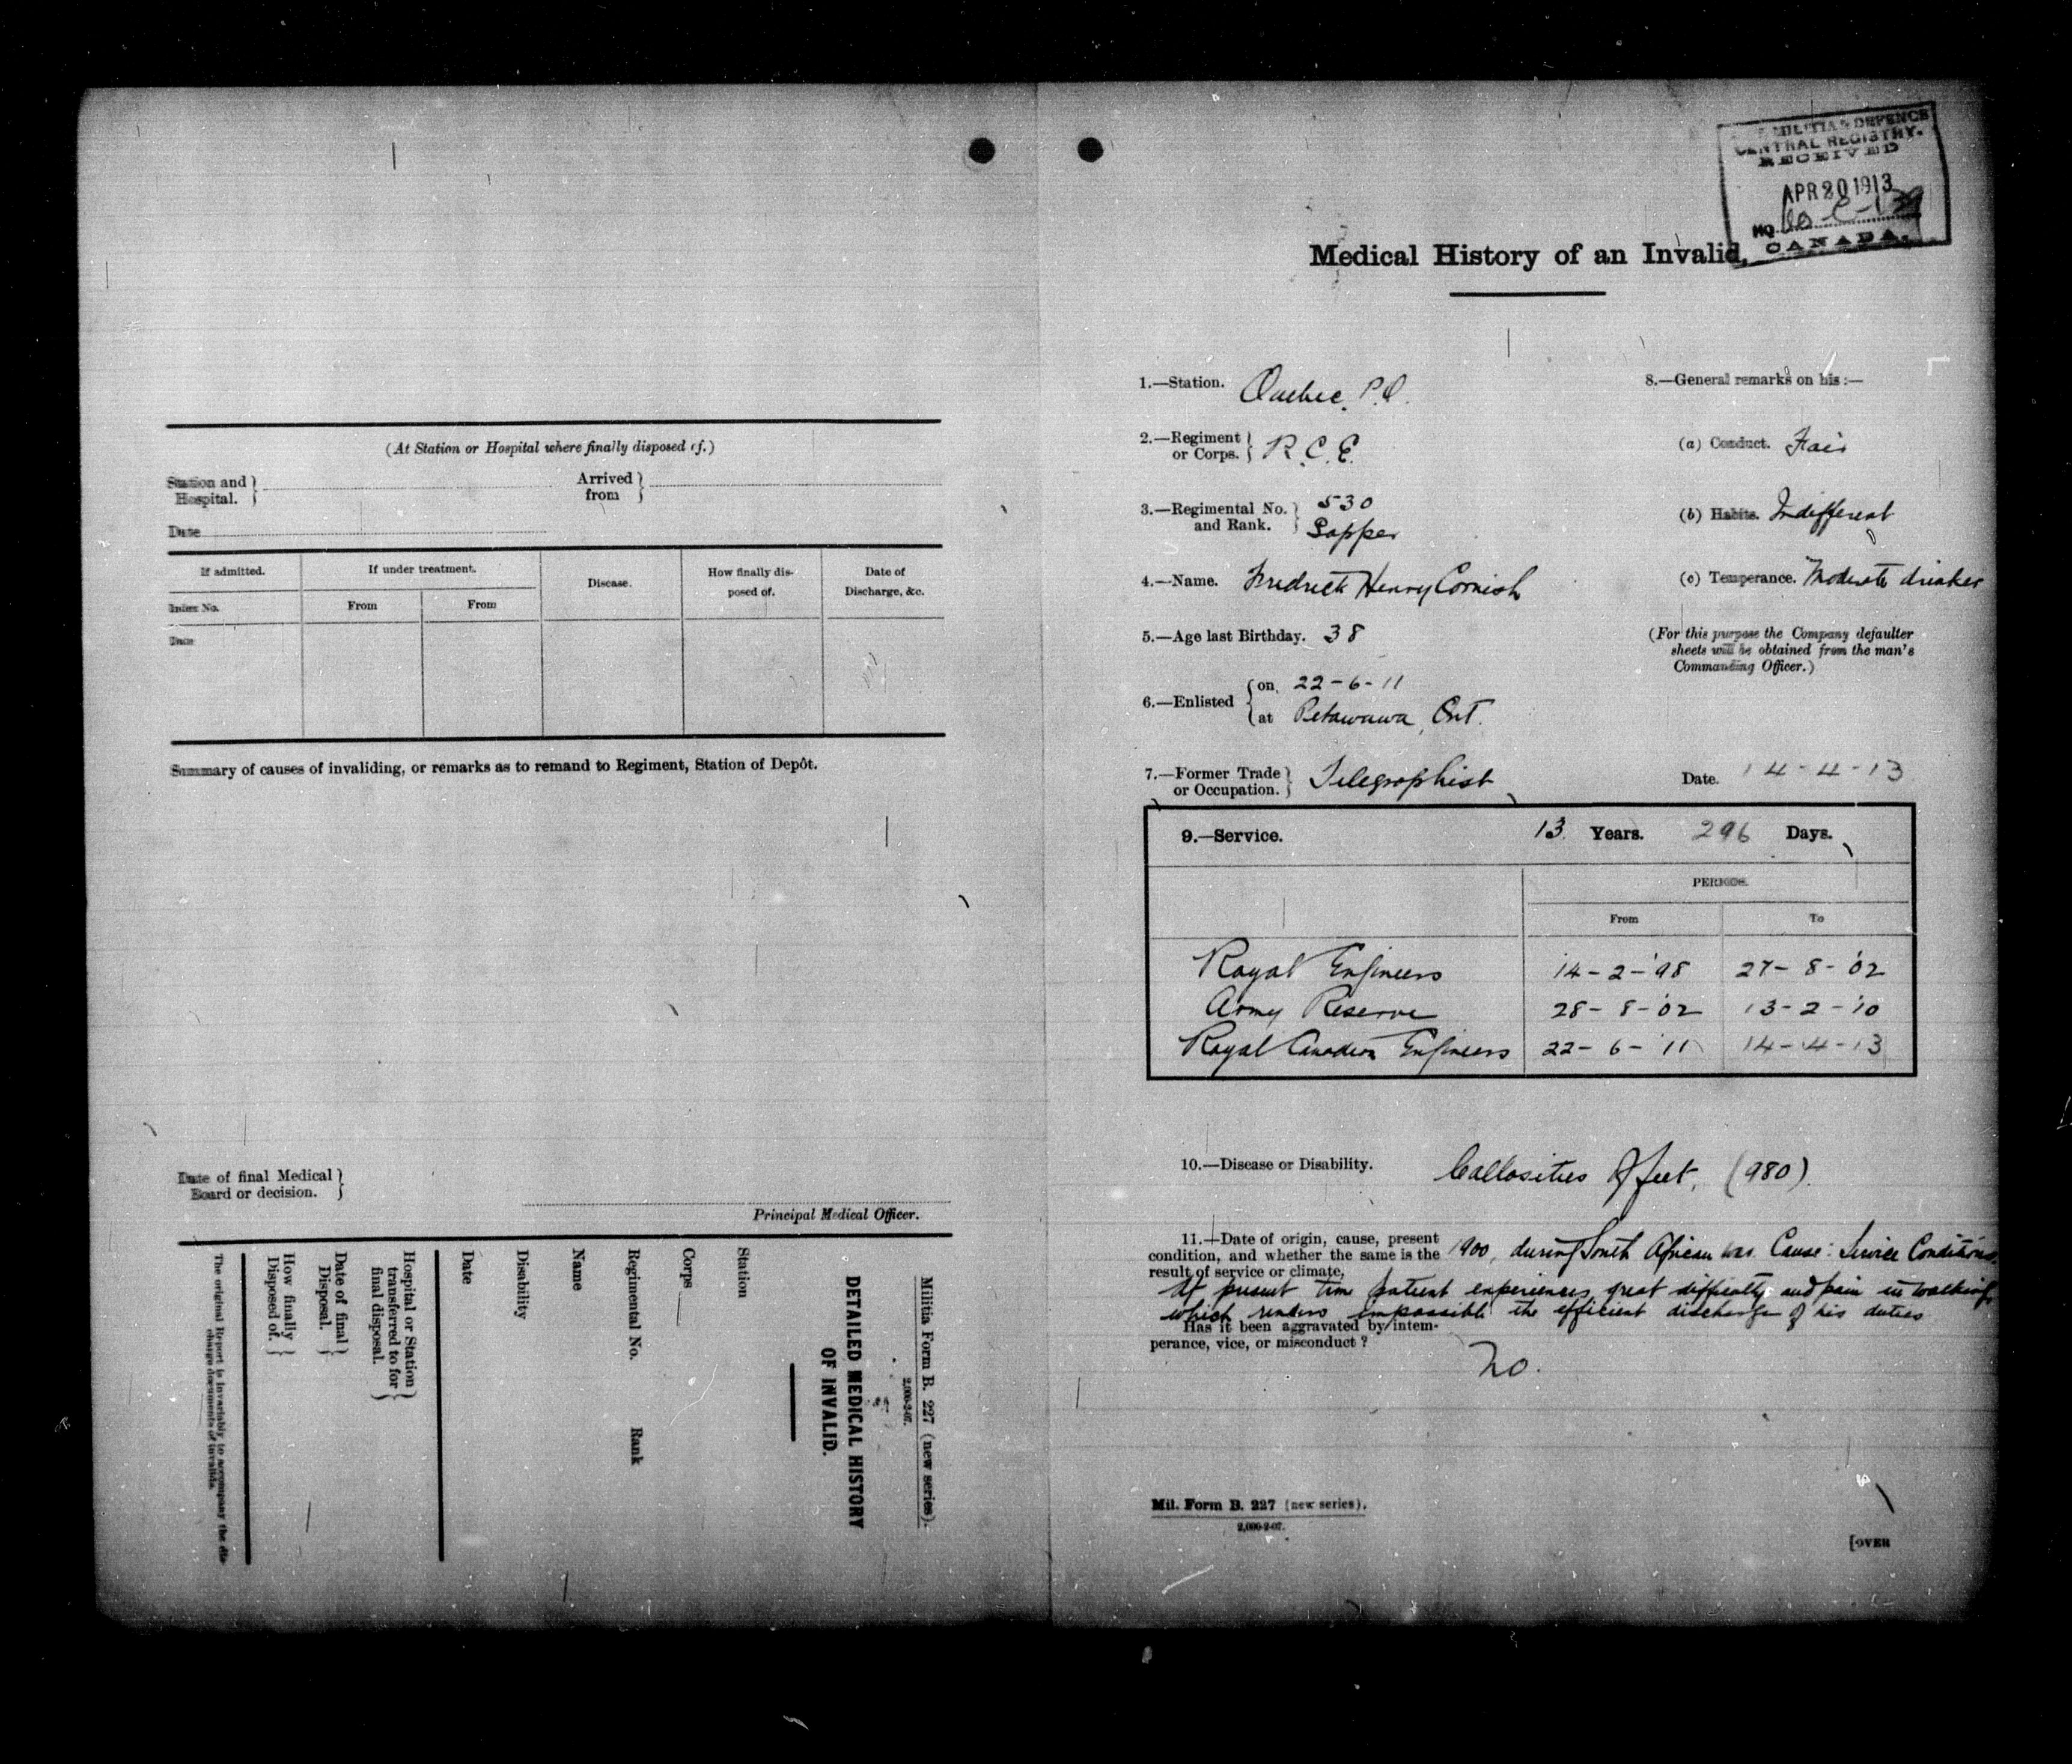 (At Station or Hospital where finally disposed of.)
Station and Hospital. } Arrived from }
Date
If admitted. If under treatment. Disease. How finally disposed of. Date of Discharge, &c.
Index No. From From
Date
Summary of causes of invaliding, or remarks as to remand to Regiment, Station of Depôt.
Date of final Medical Board or decision. }
Principal Medical Officer.
Militia Form B. 227 (new series).
2,000-2-07.
DETAILED MEDICAL HISTORY
OF INVALID.
Station
Corps
Regimental No. Rank
Name
Disability
Date
Hospital or Station transferred to for final disposal. }
Date of final Disposal. }
How finally Disposed of. }
The original Report is invariably to accompany the discharge documents of invalids.
MILITIA & DEFENCE
CENTRAL REGISTRY.
RECEIVED
APR 20 1913
HQ
CANADA.
Medical History of an Invalid,
1.—Station. Quebec, P.Q.
2.—Regiment or Corps. } R.C.E.
3.—Regimental No. and Rank. } 530 Sapper
4.—Name. Fredrick Henry Cornish
5.—Age last Birthday. 38
6.—Enlisted { on, 22-6-11
at Petawawa, Ont.
7.—Former Trade or Occupation. } Telegraphist
8.—General remarks on his :—
(a) Conduct. Fair
(b) Habits. Indifferent
(c) Temperance. Moderate drinker
(For this purpose the Company defaulter
sheets will be obtained from the man's
Commanding Officer.)
Date. 14-4-13
9.—Service. 13 Years. 296 Days.
PERIODS.
From To
Royal Engineers 14-2-'98 27-8-'02
Army Reserve 28-8-'02 13-2-'10
Royal Canadian Engineers 22-6-'11 14-4-13
10.—Disease or Disability. Callosities of feet, (980).
11.—Date of origin, cause, present
condition, and whether the same is the
result of service or climate,
1900, during South African War. Cause: Service Conditions.
At present time patient experiences great difficulty and pain in walking
which renders impossible the efficient discharge of his duties
Has it been aggravated by intem-
perance, vice, or misconduct ?
No.
Mil. Form B. 227 (new series).
2,000-2-07.
[OVER